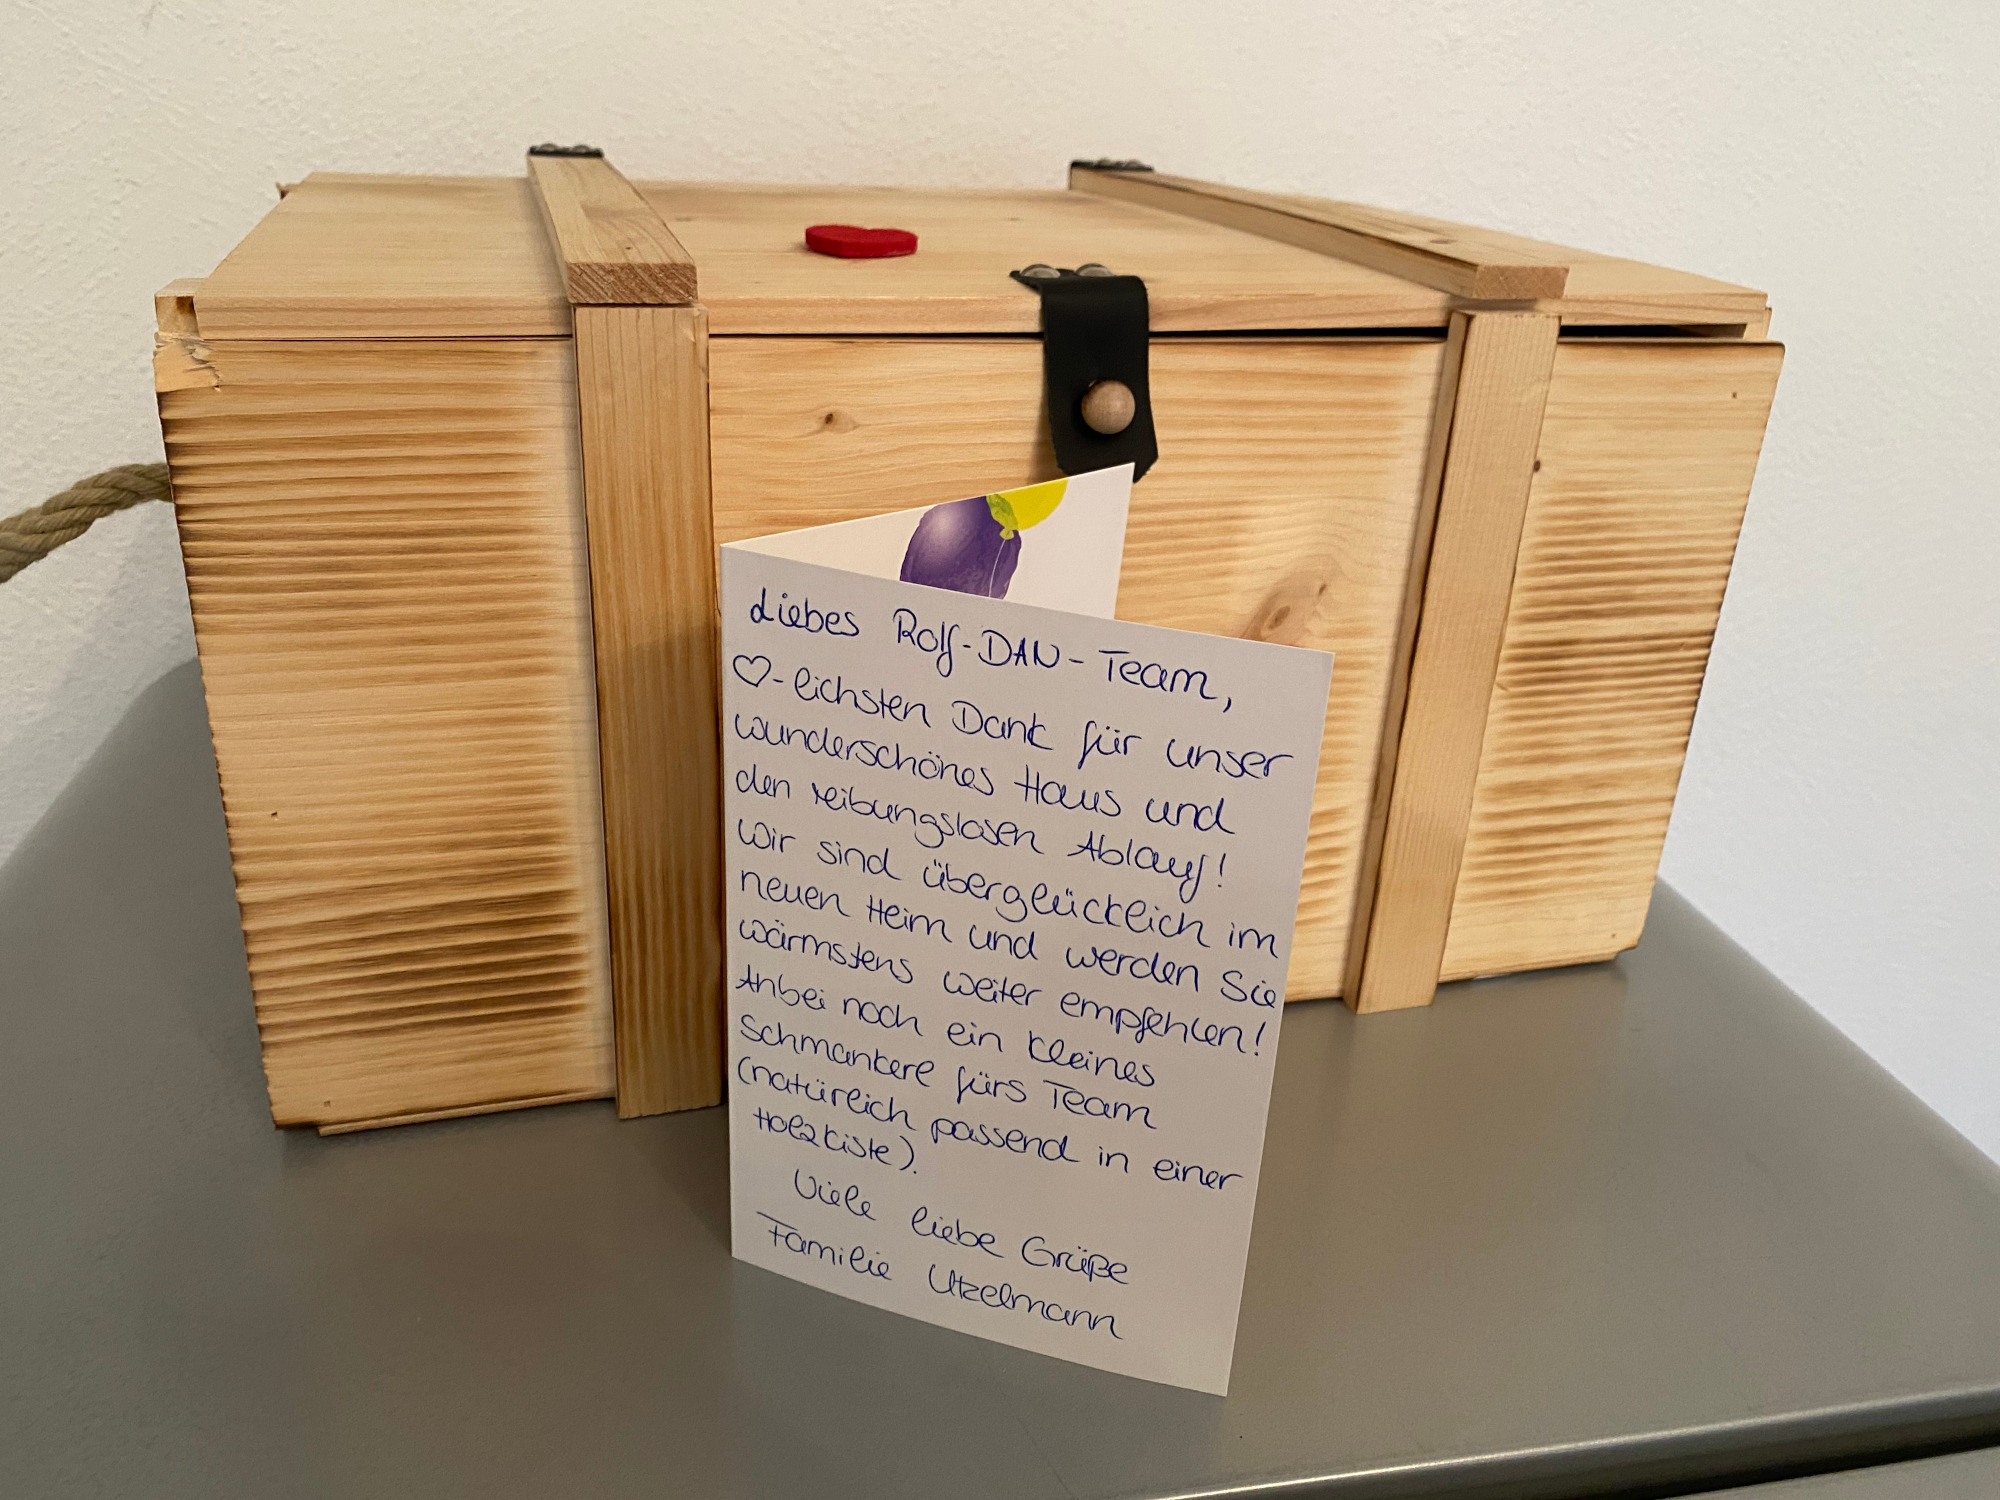 Liebes Rolf-DAN-Team,
♡-lichsten Dank für unser
wunderschönes Haus und
den reibungslosen Ablauf!
Wir sind überglücklich im
neuen Heim und werden Sie
wärmstens weiter empfehlen!
Anbei noch ein kleines
Schmankerl fürs Team
(natürlich passend in einer
Holzkiste).
Viele liebe Grüße
Familie Utzelmann